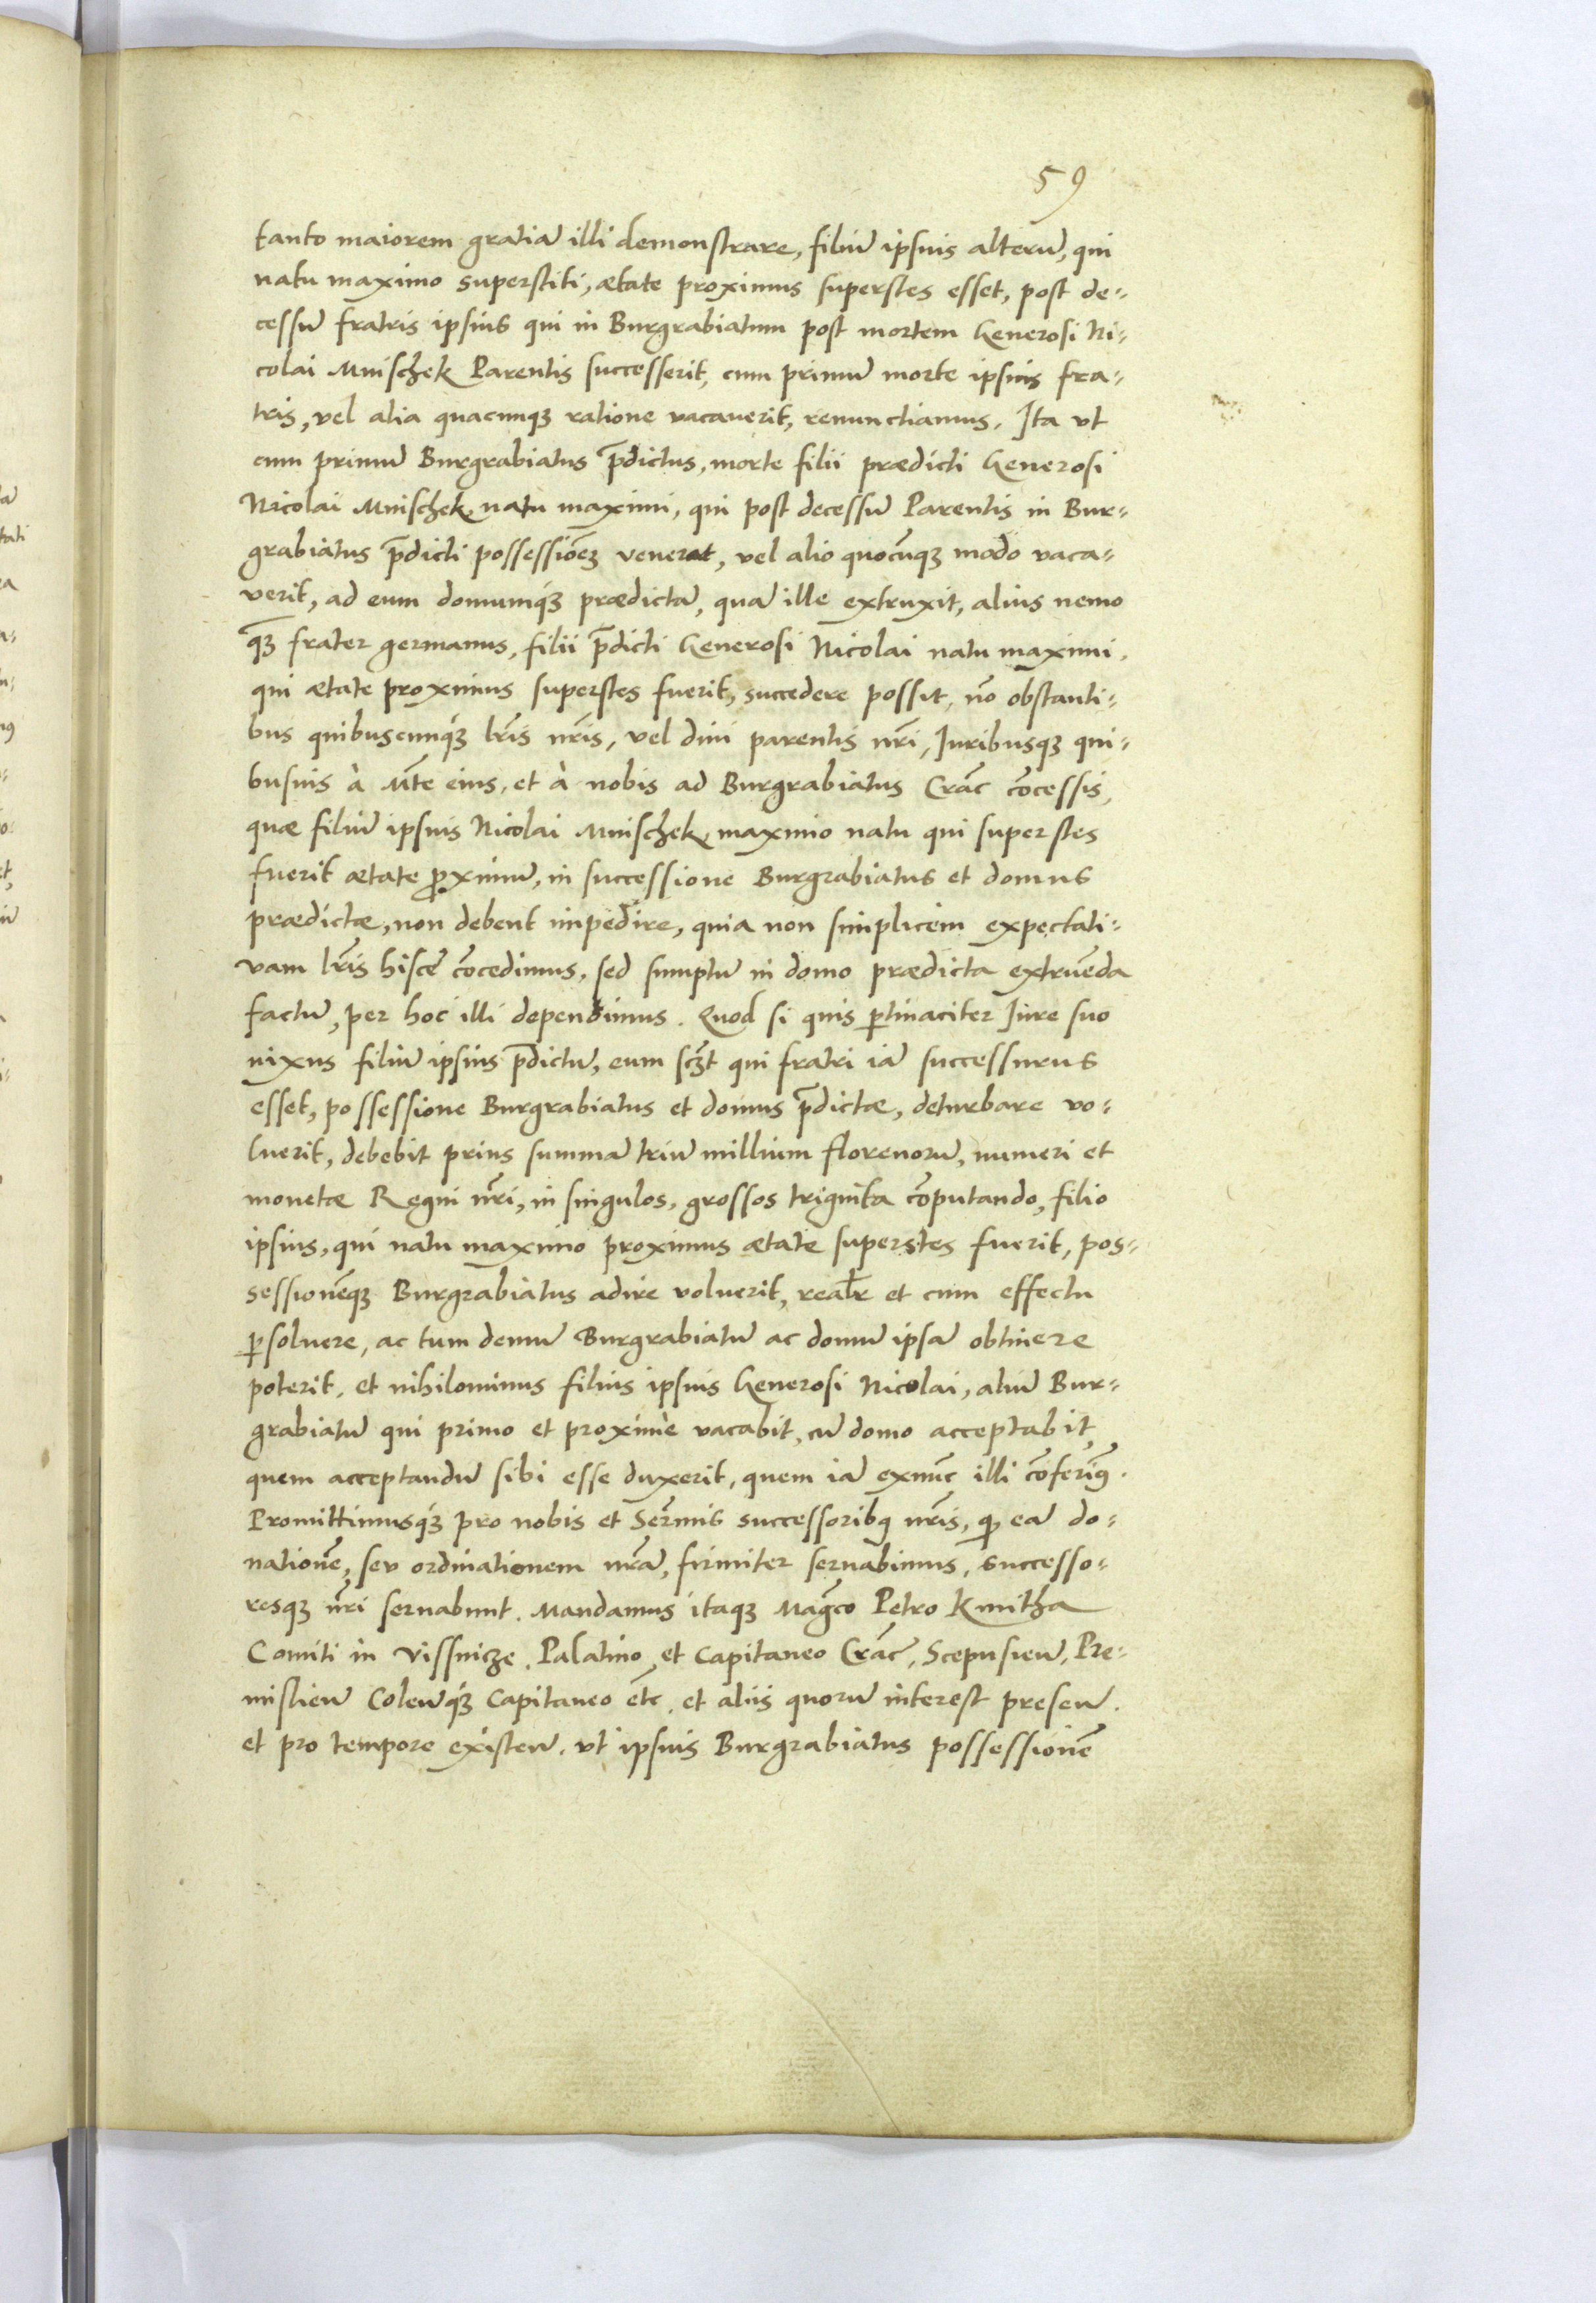 59
tanto maiorem gratiã illi demonstrare, filiũ ipsius alterũ, qui
natu maximo superstiti, ætate proximus superstes esset, post de-
cessũ fratris ipsius qui in Burgrabiatum post mortem Generosi Ni-
colai Mnischek Parentis successerit, cum primũ morte ipsius fra-
tris, vel alia quacunqꝫ ratione vacauerit, renunctiamus. Ita vt
cum primũ Burgrabiatus p̃dictus, morte filii prædicti Generosi
Nicolai Mnischek natu maximi, qui post decessũ Parentis in Bur-
grabiatus p̃dicti possessiõeꝫ venerat, vel alio quocũqꝫ modo vaca-
verit, ad eum domumqꝫ prædictã, quã ille extruxit, alius nemo
q̃ꝫ frater germanus, filii p̃dicti Generosi Nicolai natu maximi,
qui ætate proximus superstes fuerit, succedere possit, nõ obstanti-
bus quibuscunqꝫ lr̃is nr̃is, vel diui parentis nr̃i, Iuribusqꝫ qui-
busuis à Mt̃e eius, et à nobis ad Burgrabiatus Crac̃ cõcessis,
quæ filiũ ipsius Nicolai Mnischek maximo natu qui superstes
fuerit ætate ꝓximũ, in successione Burgrabiatus et domus
prædictæ, non debent impedire, quia non simplicem expectati-
vam lr̃is hisce cõcedimus, sed sumptũ in domo prædicta extruẽda
factũ, per hoc illi dependimus. Quod si quis ꝑtinaciter Iure suo
nixus filiũ ipsius p̃dictũ, eum scꝫt qui fratri iã successurus
esset, possessione Burgrabiatus et domus p̃dictæ, deturbare vo-
luerit, debebit prius summã triũ millium florenorũ, numeri et
monetæ Regni nr̃i, in singulos, grossos triginta cõputando, filio
ipsius, qui natu maximo proximus ætate superstes fuerit, pos-
sessionẽqꝫ Burgrabiatus adire voluerit, realr̃ et cum effectu
ꝑsoluere, ac tum demũ Burgrabiatũ ac domũ ipsã obtinere
poterit, et nihilominus filius ipsius Generosi Nicolai, aliũ Bur-
grabiatũ qui primo et proximè vacabit, cũ domo acceptabit,
quem acceptandũ sibi esse duxerit, quem iã exnũc illi cõferimꝰ.
Promittimusqꝫ pro nobis et Ser̃mis successoribꝰ nr̃is, ꝙ eã do-
nationẽ, seu ordinationem nr̃ã, firmiter seruabimus, successo-
resqꝫ nr̃i seruabunt. Mandamus itaqꝫ Mag̃co Petro Kmitha
Comiti in Vissnicze, Palatino et Capitaneo Crac̃, Scepusieñ, Pre-
mislieñ Coleñqꝫ Capitaneo etc̃, et aliis quorũ interest preseñ.
et pro tempore existeñ, vt ipsius Burgrabiatus possessionẽ